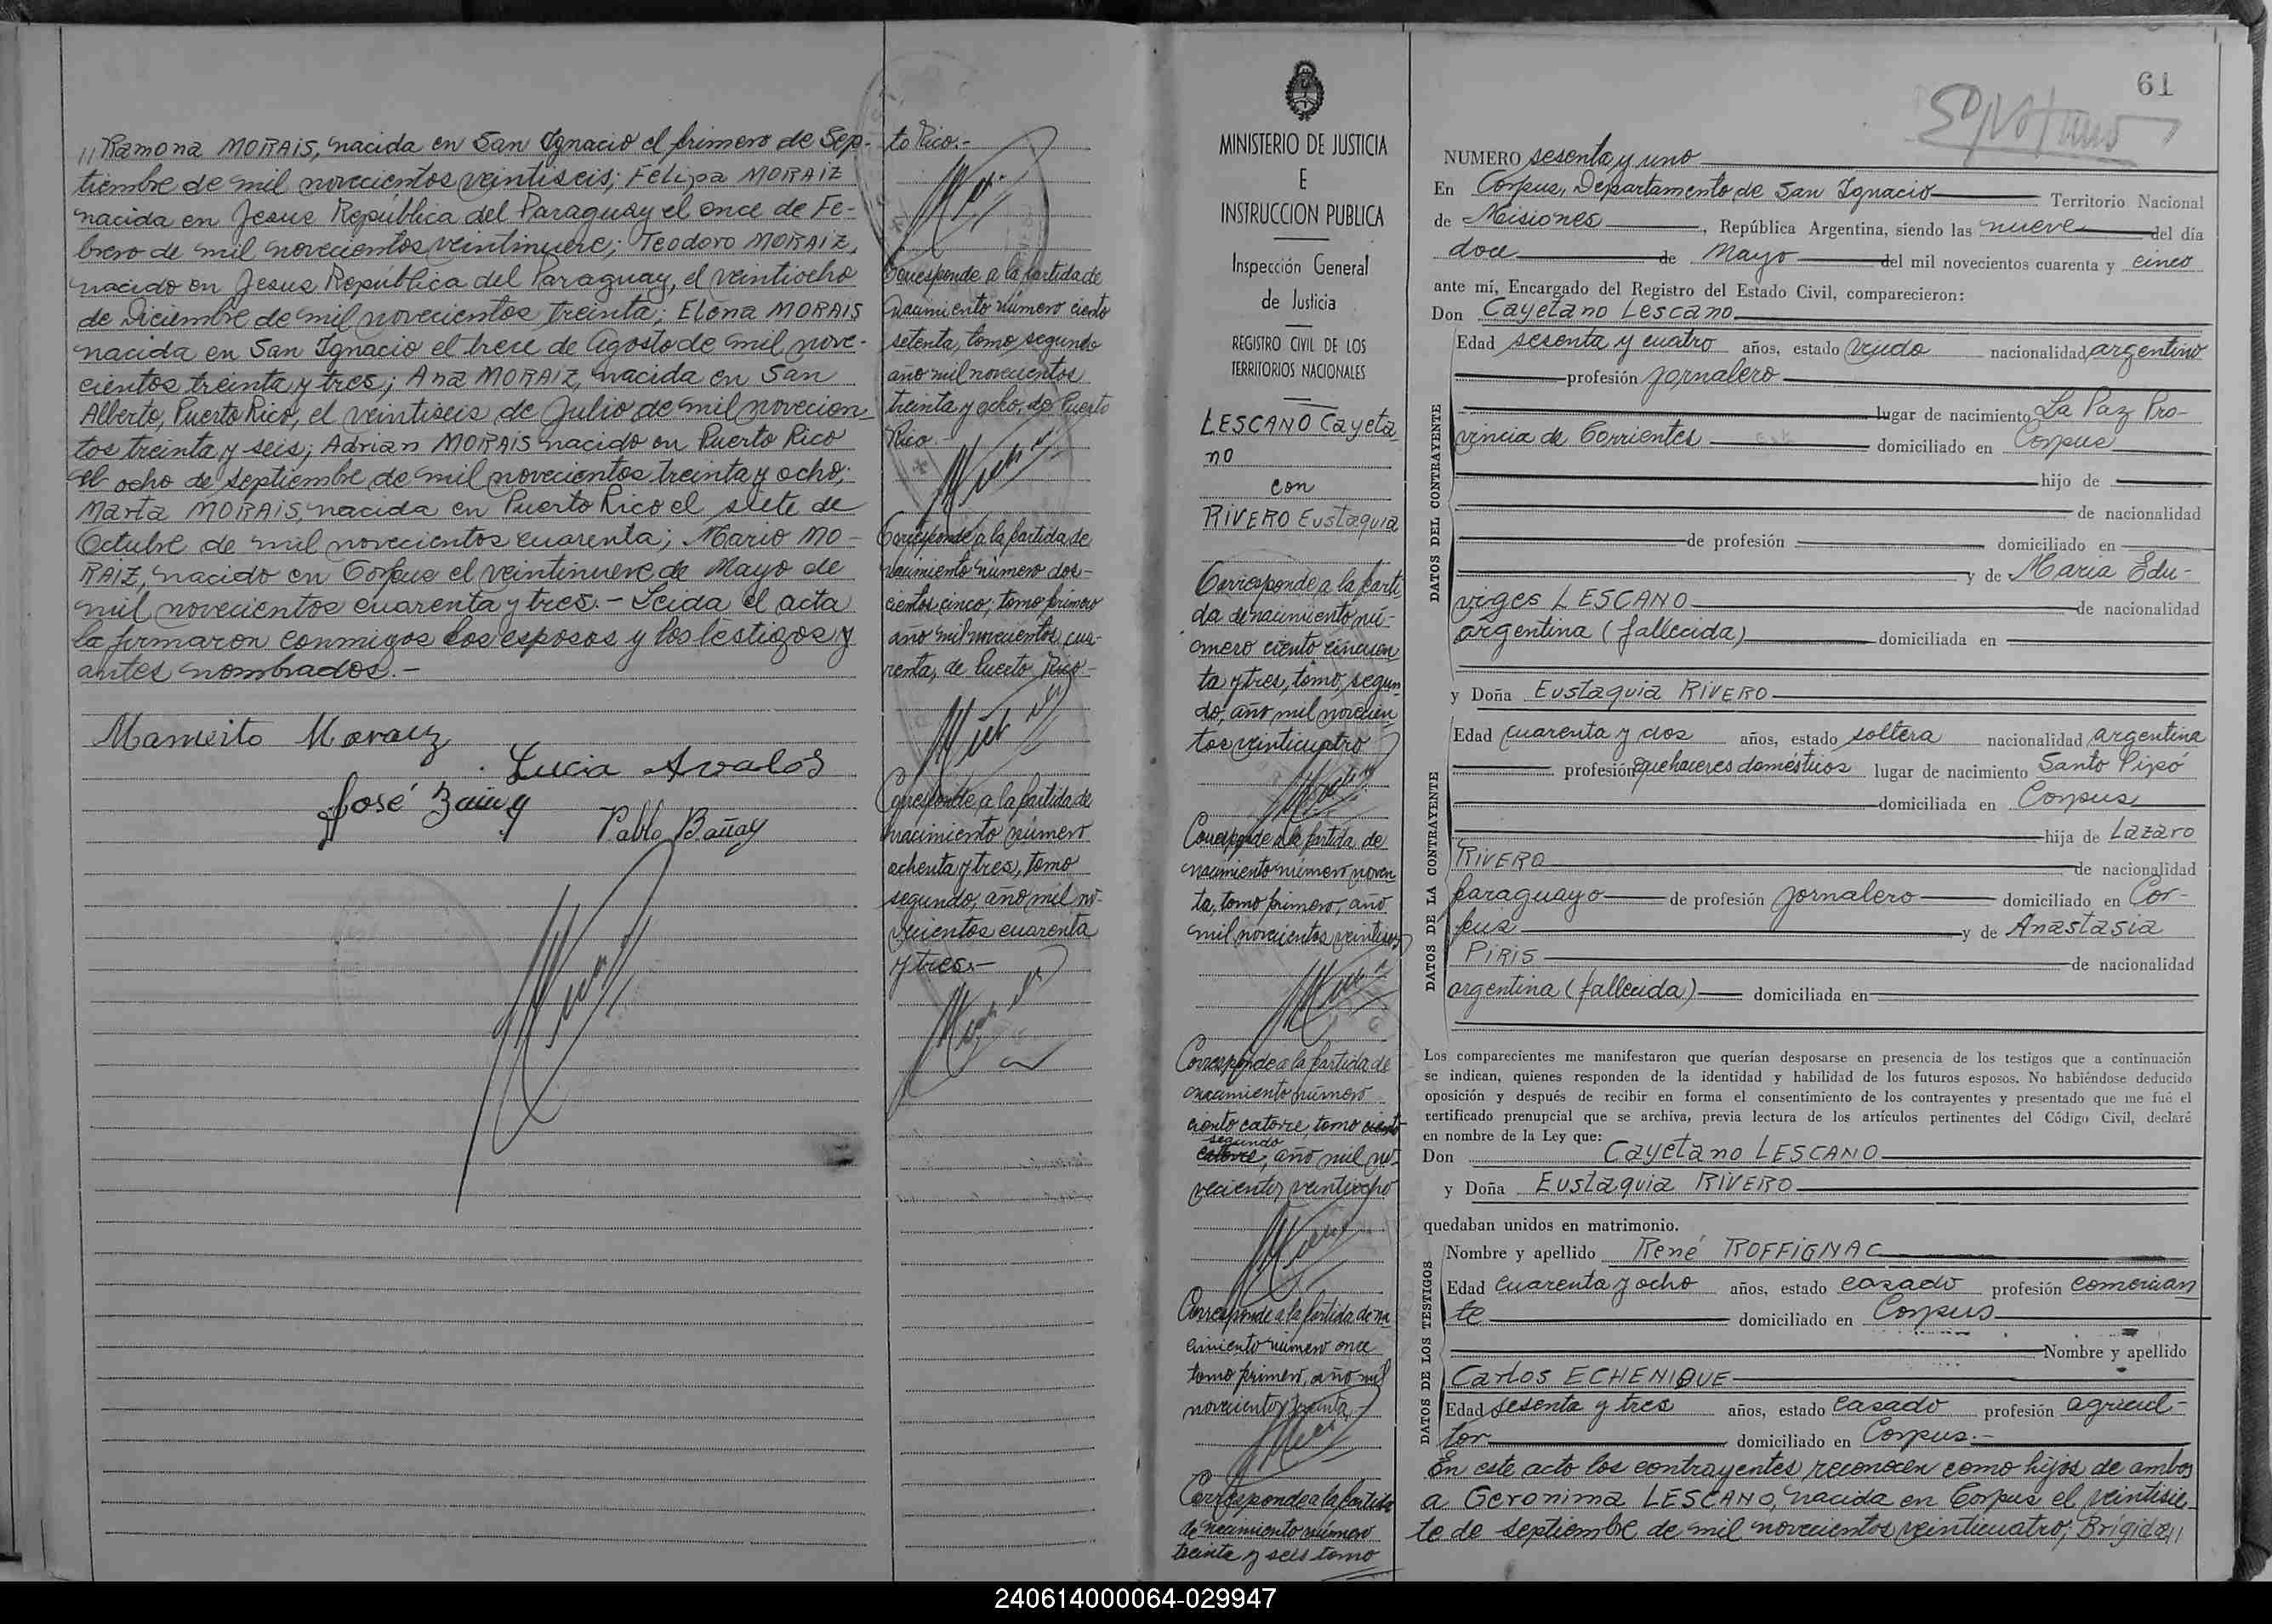 // Ramona MORAIS, nacida en San Ignacio el primero de Sep-
tiembre de mil novecientos veintiseis; Felipa MORAIZ
nacida en Jesus República del Paraguay el once de Fe-
brero de mil novecientos veintinueve; Teodoro MORAIZ,
nacido en Jesus República del Paraguay, el veintiocho
de Diciembre de mil novecientos treinta; Elena MORAIS
nacida en San Ignacio el trece de Agosto de mil nove-
cientos treinta y tres; Ana MORAIZ, nacida en San
Alberto, Puerto Rico, el veintiseis de Julio de mil novecien-
tos treinta y seis; Adrian MORAIS nacido en Puerto Rico
el ocho de septiembre de mil novecientos treinta y ocho;
Marta MORAIS, nacida en Puerto Rico el siete de
Octubre de mil novecientos cuarenta; Mario MO-
RAIZ, nacido en Corpus el veintinueve de Mayo de
mil novecientos cuarenta y tres.- Leida el acta
la firmaron conmigos los esposos y los testigos y
antes nombrados.-
Mamerto Moraiz
Lucia Avalos
José
Pablo
to Rico.-
Corresponde a la partida de
nacimiento número ciento
setenta, tomo segundo
año mil novecientos
treinta y ocho, de Puerto
Rico.-
Corresponde a la partida de
nacimiento número dos-
cientos cinco, tomo primero
año mil novecientos cua-
renta, de Puerto Rico-
Corresponde a la partida de
nacimiento número
ochenta y tres, tomo
segundo, año mil no-
vecientos cuarenta
y tres.-
MINISTERIO DE JUSTICIA
E
INSTRUCCION PUBLICA
Inspección General
de Justicia
REGISTRO CIVIL DE LOS
TERRITORIOS NACIONALES
LESCANO Cayeta
no
con
RIVERO Eustaquia
Corresponde a la parti
da de nacimiento nú-
mero ciento cincuen
ta y tres, tomo, segun
do, año mil novecien
tos veinticuatro
Corresponde a la partida de
nacimiento número noven
ta, tomo primero, año
mil novecientos
Corresponde a la partida de
nacimiento número
ciento catorce, tomo ciento
segundo
catorce, año mil no-
vecientos veintiocho
Corresponde a la partida de na
cimiento número once
tomo primero, año mil
novecientos treinta.-
Corresponde a la partida
de nacimiento número
treinta y seis tomo
61
NUMERO sesenta y uno
En Corpus, Departamento de San Ignacio Territorio Nacional
de Misiones, República Argentina, siendo las nueve del día
doce de Mayo del mil novecientos cuarenta y cinco
ante mí, Encargado del Registro del Estado Civil, comparecieron:
Don Cayetano Lescano
DATOS DEL CONTRAYENTE
Edad sesenta y cuatro años, estado viudo nacionalidad argentino
profesión jornalero
lugar de nacimiento La Paz Pro-
vincia de Corrientes domiciliado en Corpus
hijo de
de nacionalidad
de profesión domiciliado en
y de Maria Edu-
viges LESCANO de nacionalidad
argentina (fallecida) domiciliada en
y Doña Eustaquia RIVERO
DATOS DE LA CONTRAYENTE
Edad cuarenta y dos años, estado soltera nacionalidad argentina
profesión quehaceres domésticos lugar de nacimiento Santo Pipó
domiciliada en Corpus
hija de Lazaro
RIVERO de nacionalidad
paraguayo de profesión jornalero domiciliado en Cor-
pus y de Anastasia
PIRIS de nacionalidad
argentina (fallecida) domiciliada en
Los comparecientes me manifestaron que querían desposarse en presencia de los testigos que a continuación
se indican, quienes responden de la identidad y habilidad de los futuros esposos. No habiéndose deducido
oposición y después de recibir en forma el consentimiento de los contrayentes y presentado que me fué el
certificado prenupcial que se archiva, previa lectura de los artículos pertinentes del Código Civil, declaré
en nombre de la Ley que:
Don Cayetano LESCANO
y Doña Eustaquia RIVERO
quedaban unidos en matrimonio.
DATOS DE LOS TESTIGOS
Nombre y apellido René ROFFIGNAC
Edad cuarenta y ocho años, estado casado profesión comercian
te domiciliado en Corpus
Nombre y apellido
Carlos ECHENIQUE
Edad sesenta y tres años, estado casado profesión agricul-
tor domiciliado en Corpus.-
En este acto los contrayentes reconocen como hijos de ambos
a Geronima LESCANO, nacida en Corpus el veintisie-
te de septiembre de mil novecientos veinticuatro; Brigida //
240614000064-029947